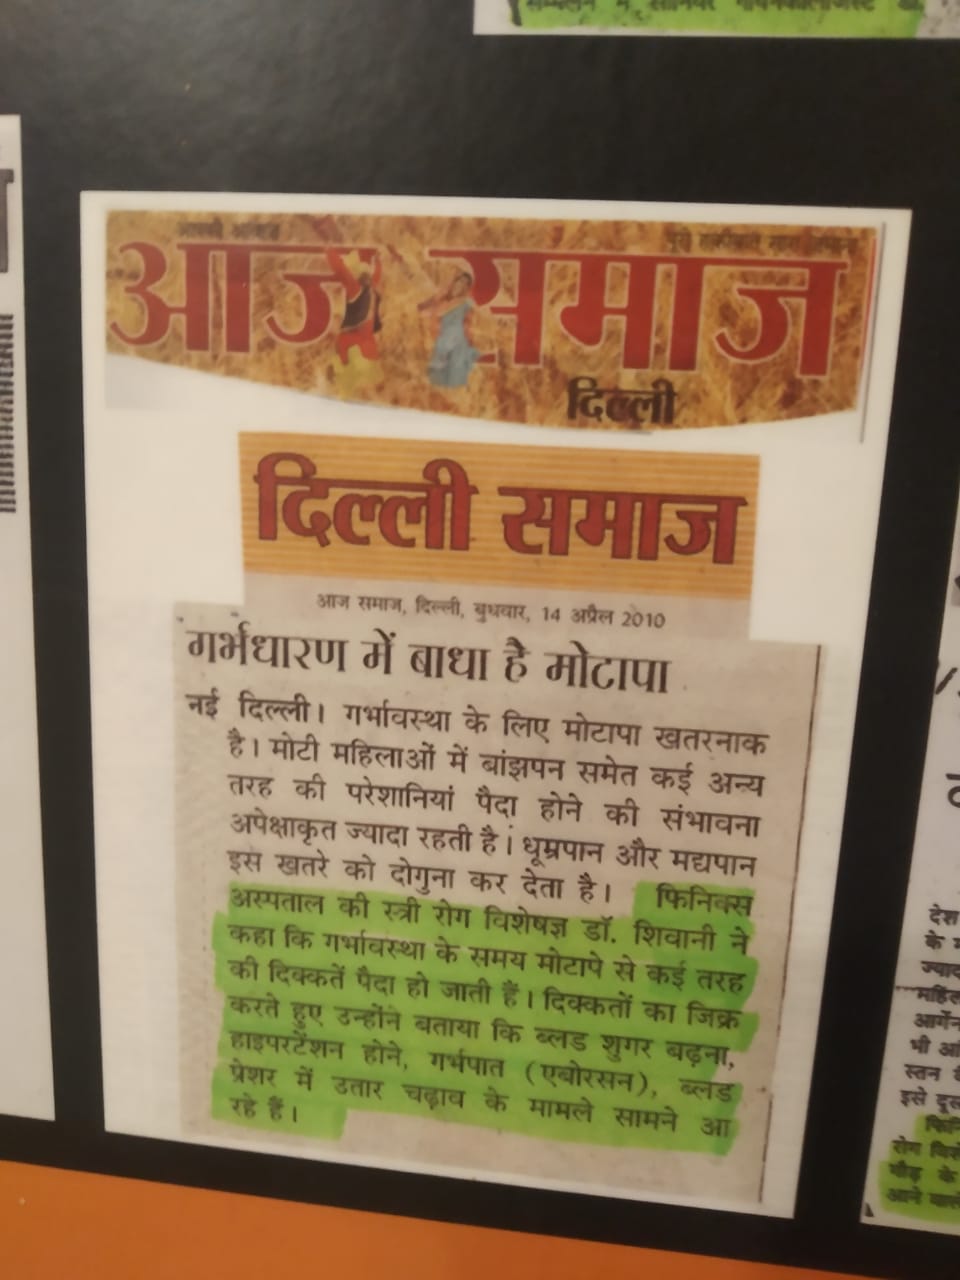 सम्मेलन में सीनियर गायनेकोलॉजिस्ट डॉ.
आज समाज
दिल्ली
दिल्ली समाज
आज समाज, दिल्ली, बुधवार, 14 अप्रैल 2010
गर्भधारण में बाधा है मोटापा
नई दिल्ली। गर्भावस्था के लिए मोटापा खतरनाक
है। मोटी महिलाओं में बांझपन समेत कई अन्य
तरह की परेशानियां पैदा होने की संभावना
अपेक्षाकृत ज्यादा रहती है। धूम्रपान और मद्यपान
इस खतरे को दोगुना कर देता है। फिनिक्स
अस्पताल की स्त्री रोग विशेषज्ञ डॉ. शिवानी ने
कहा कि गर्भावस्था के समय मोटापे से कई तरह
की दिक्कतें पैदा हो जाती हैं। दिक्कतों का जिक्र
करते हुए उन्होंने बताया कि ब्लड शुगर बढ़ना,
हाइपरटेंशन होने, गर्भपात (एबोरसन), ब्लड
प्रेशर में उतार चढ़ाव के मामले सामने आ
रहे हैं।
देश
के
ज्याद
महिल
आर्गेन
भी
स्तन
इसे
रोग
के
आने